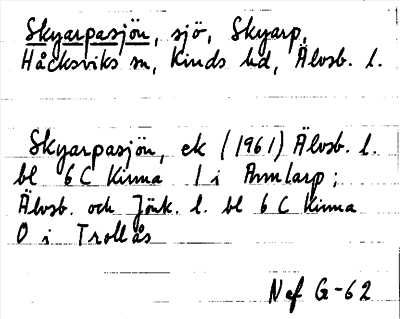 Skyarpasjön, sjö, Skyarp,
Håcksviks sn, Kinds hd, Älvsb. l.
Skyarpasjön, ek (1961) Älvsb. l.
bl 6 C Kinna 1 i Arnlarp;
Älvsb. och Jönk. l. bl 6 C Kinna
0 i Trollås
Nef G-62